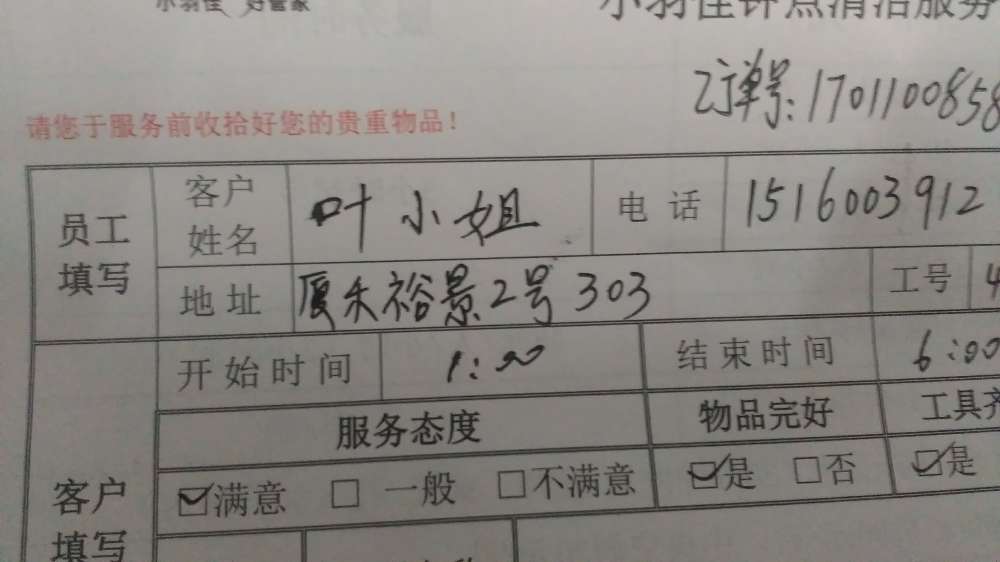 小羽佳 好管家
小羽佳钟点清洁服务
订单号:1701100858
请您于服务前收拾好您的贵重物品!
员工填写 客户姓名 叶小姐 电话 1516003912
地址 厦禾裕景2号303 工号 4
开始时间 1:00 结束时间 6:00
服务态度 物品完好 工具齐
客户填写 ☑满意 □一般 □不满意 ☑是 □否 ☑是